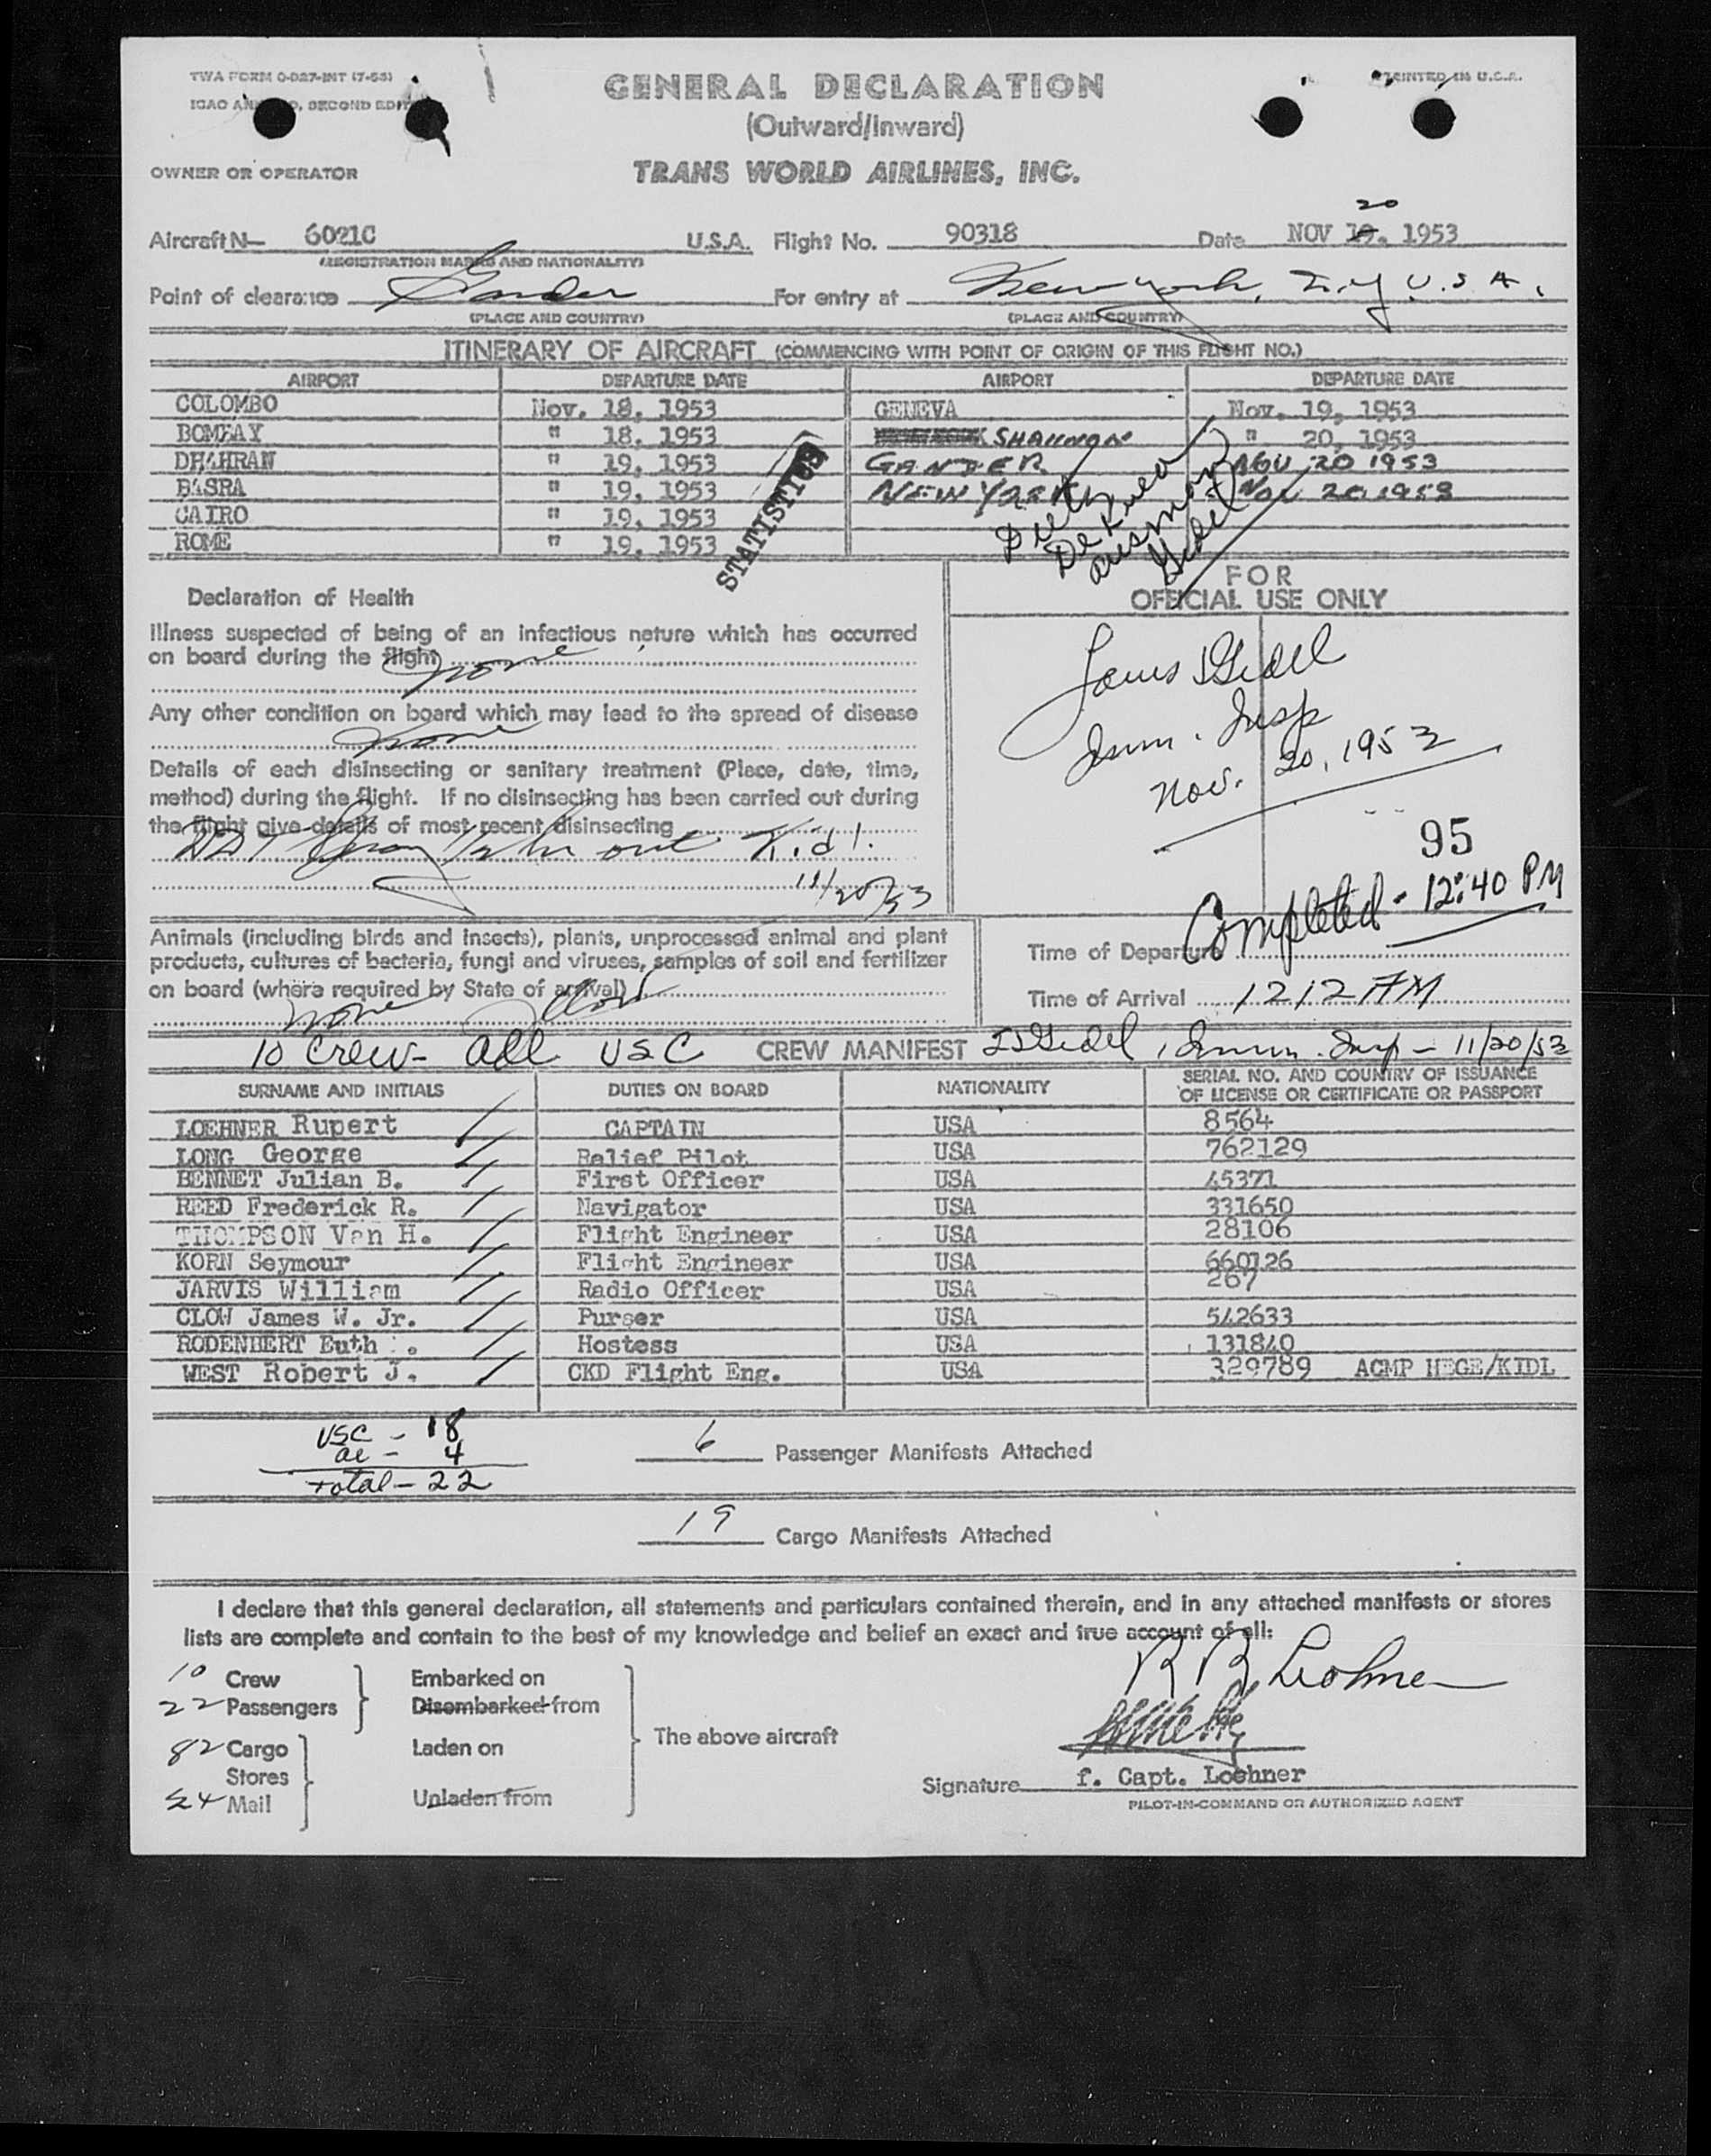 TWA FORM O-027-INT (7-53)
PRINTED IN U.S.A.
GENERAL DECLARATION
(Outward/Inward)
OWNER OR OPERATOR
TRANS WORLD AIRLINES, INC.
20
Aircraft N— 6021C U.S.A. Flight No. 90318 Date NOV 19. 1953
(REGISTRATION MARKS AND NATIONALITY)
Point of clearance Gander For entry at New York, N.Y U.S.A.
(PLACE AND COUNTRY) (PLACE AND COUNTRY)
ITINERARY OF AIRCRAFT (COMMENCING WITH POINT OF ORIGIN OF THIS FLIGHT NO.)
AIRPORT DEPARTURE DATE AIRPORT DEPARTURE DATE
COLOMBO Nov. 18, 1953 GENEVA Nov. 19, 1953
BOMBAY " 18. 1953 SHANNON " 20, 1953
DHAHRAN " 19. 1953 GANDER NOV 20 1953
BASRA " 19. 1953 NEW YORK Nov 20 1953
CAIRO " 19. 1953
ROME " 19. 1953
STATISTICS
Gidel
FOR
OFFICIAL USE ONLY
Declaration of Health
Illness suspected of being of an infectious nature which has occurred
on board during the flight none
Any other condition on board which may lead to the spread of disease
none
Details of each disinsecting or sanitary treatment (Place, date, time,
method) during the flight. If no disinsecting has been carried out during
the flight give details of most recent disinsecting
DDT Spray out Kidl.
11/20/53
Gidel
Imm. Insp
Nov. 20, 1953
95
Completed - 12:40 PM
Animals (including birds and insects), plants, unprocessed animal and plant
products, cultures of bacteria, fungi and viruses, samples of soil and fertilizer
on board (where required by State of arrival)
none
Time of Departure
Time of Arrival 1212 PM
10 Crew - all USC CREW MANIFEST Gidel, Imm. Insp - 11/20/53
SURNAME AND INITIALS DUTIES ON BOARD NATIONALITY SERIAL NO. AND COUNTRY OF ISSUANCE
OF LICENSE OR CERTIFICATE OR PASSPORT
LOEHNER Rupert CAPTAIN USA 8564
LONG George Relief Pilot USA 762129
BENNET Julian B. First Officer USA 45371
REED Frederick R. Navigator USA 331650
THOMPSON Van H. Flight Engineer USA 28106
KORN Seymour Flight Engineer USA 660126
JARVIS William Radio Officer USA 267
CLOW James W. Jr. Purser USA 542633
RODENBERT Ruth . Hostess USA 131840
WEST Robert J. CKD Flight Eng. USA 329789 ACMP HEGE/KIDL
USC - 18
al - 4
total - 22
6 Passenger Manifests Attached
19 Cargo Manifests Attached
I declare that this general declaration, all statements and particulars contained therein, and in any attached manifests or stores
lists are complete and contain to the best of my knowledge and belief an exact and true account of all:
10 Crew Embarked on
22 Passengers Disembarked from
The above aircraft
82 Cargo Laden on
Stores
54 Mail Unladen from
R B Loehner
Signature f. Capt. Loehner
PILOT-IN-COMMAND OR AUTHORIZED AGENT